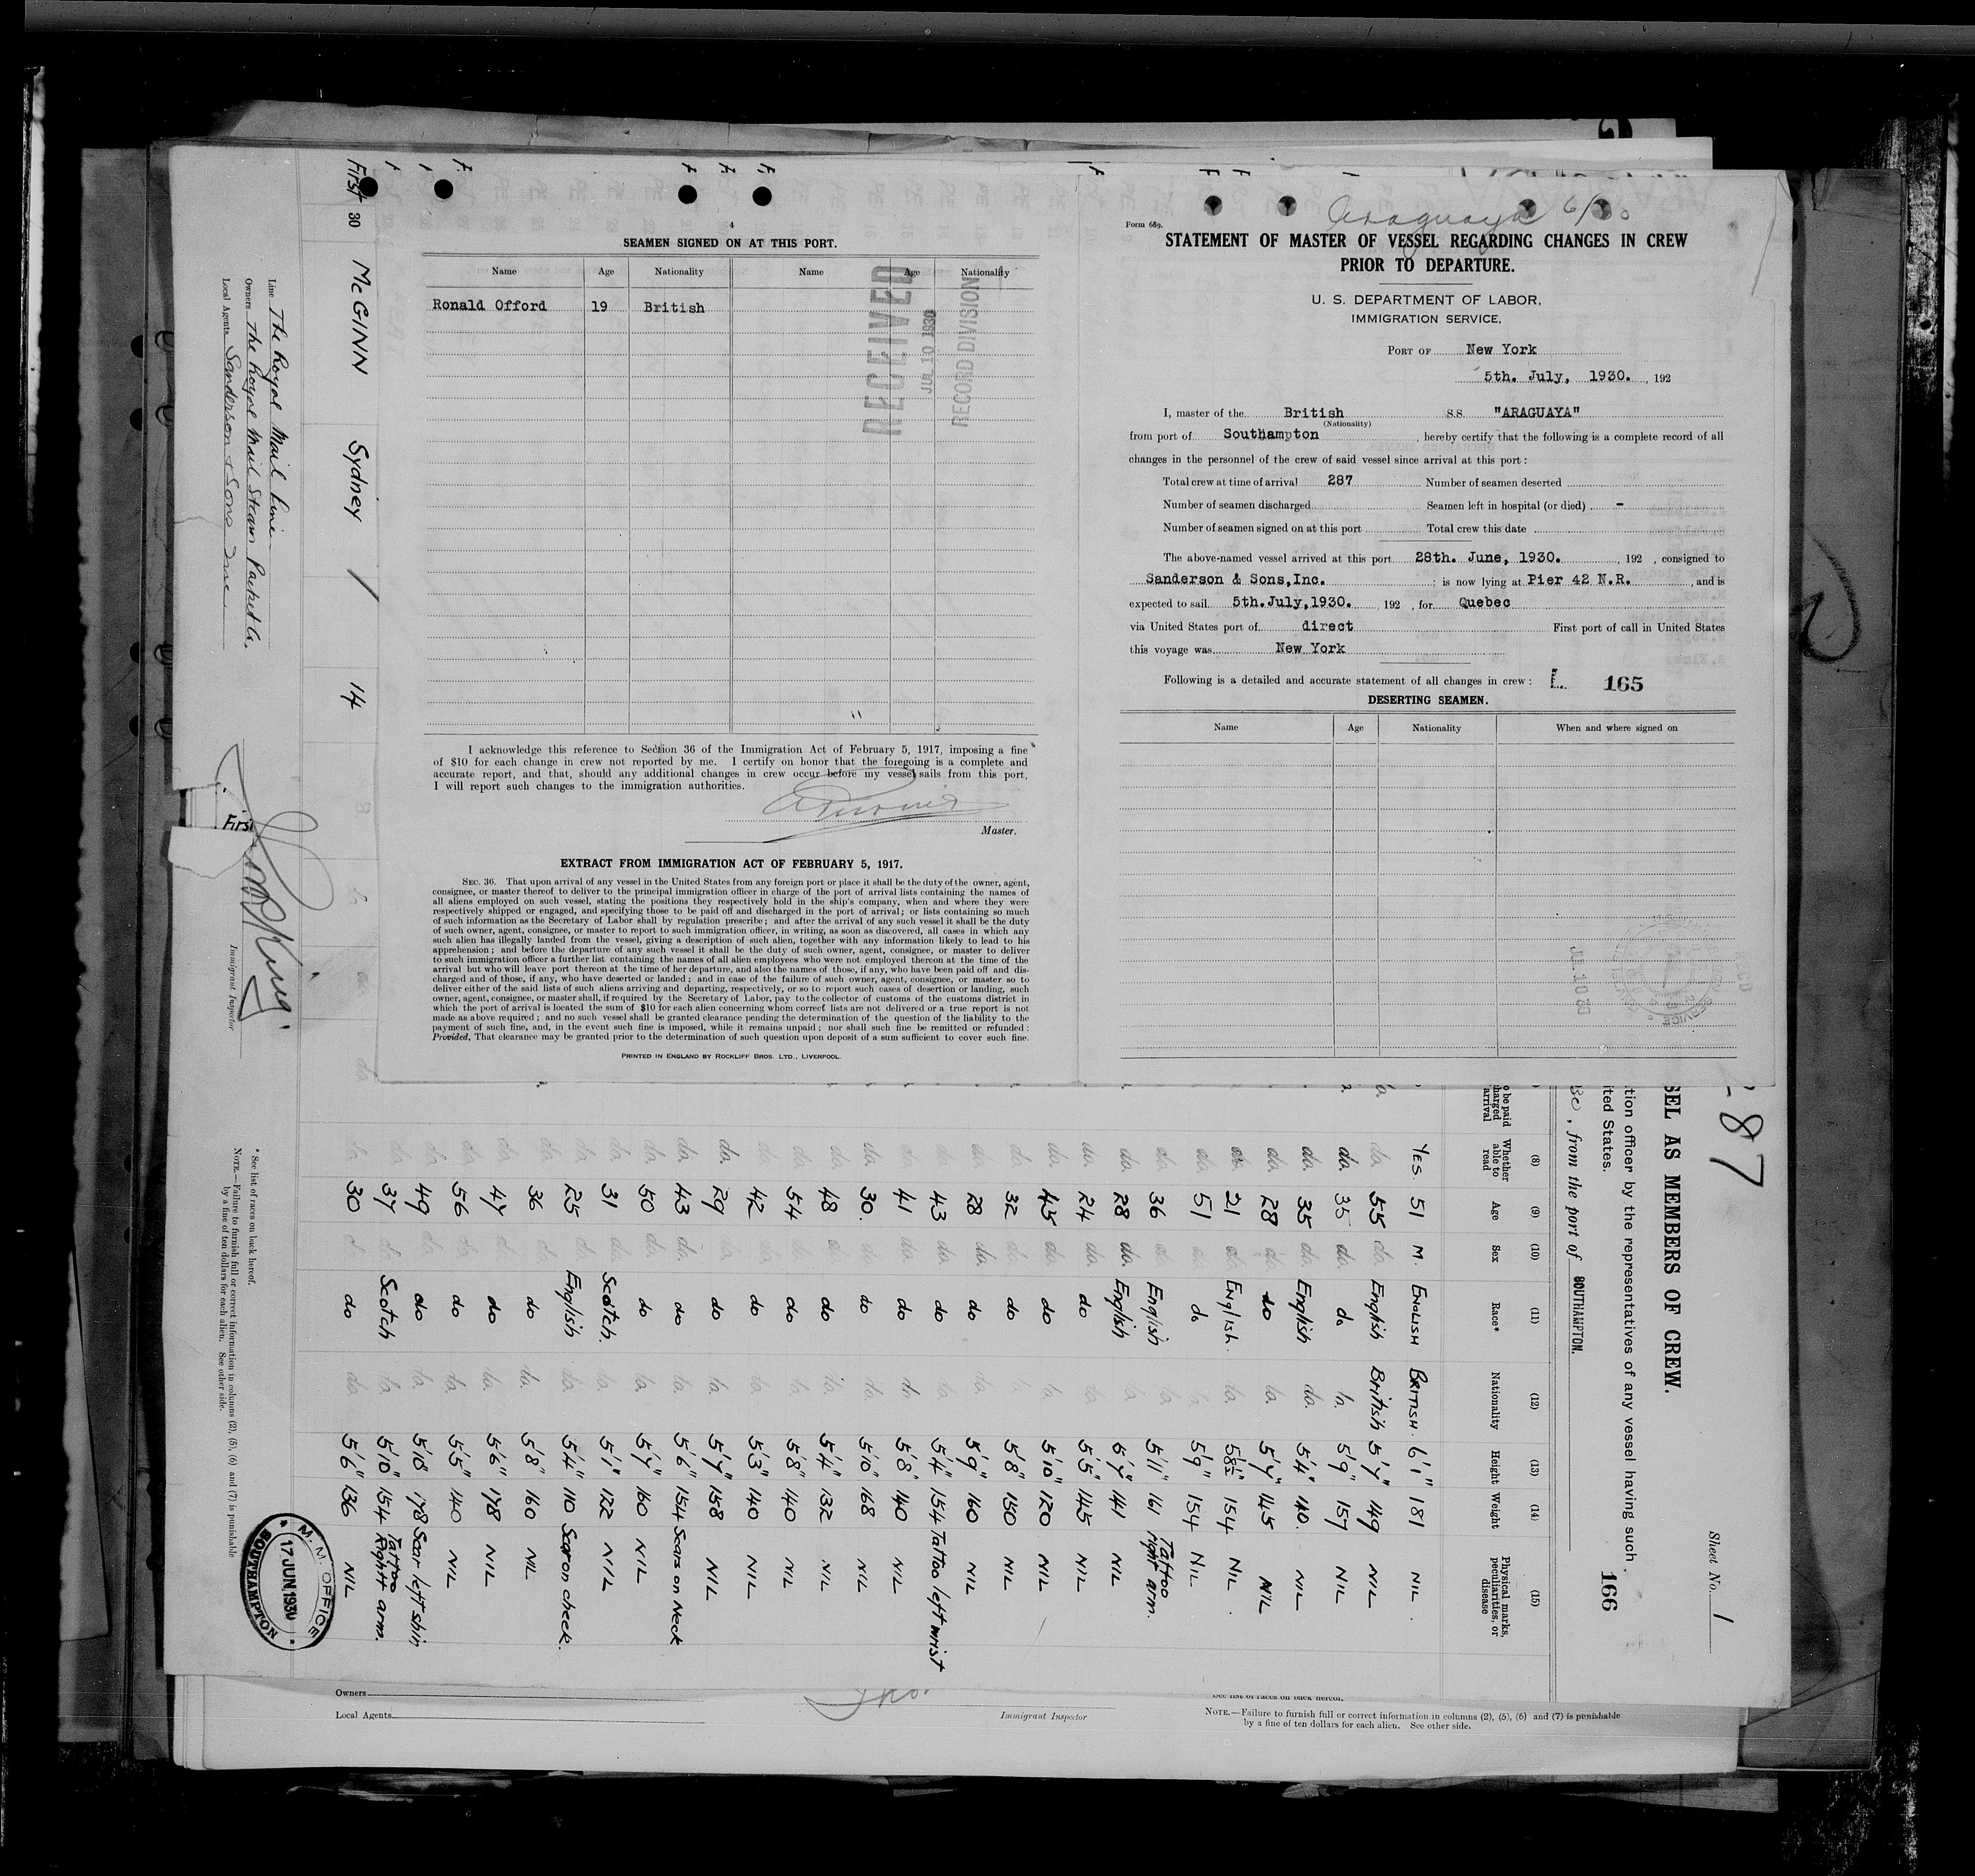 4
SEAMEN SIGNED ON AT THIS PORT.
Name Age Nationality Name Age Nationality
Ronald Offord 19 British
RECEIVED
JUL 10 1930
RECORD DIVISION
I acknowledge this reference to Section 36 of the Immigration Act of February 5, 1917, imposing a fine
of $10 for each change in crew not reported by me. I certify on honor that the foregoing is a complete and
accurate report, and that, should any additional changes in crew occur before my vessel sails from this port,
I will report such changes to the immigration authorities.
Master.
EXTRACT FROM IMMIGRATION ACT OF FEBRUARY 5, 1917.
SEC. 36. That upon arrival of any vessel in the United States from any foreign port or place it shall be the duty of the owner, agent,
consignee, or master thereof to deliver to the principal immigration officer in charge of the port of arrival lists containing the names of
all aliens employed on such vessel, stating the positions they respectively hold in the ship's company, when and where they were
respectively shipped or engaged, and specifying those to be paid off and discharged in the port of arrival; or lists containing so much
of such information as the Secretary of Labor shall by regulation prescribe; and after the arrival of any such vessel it shall be the duty
of such owner, agent, consignee, or master to report to such immigration officer, in writing, as soon as discovered, all cases in which any
such alien has illegally landed from the vessel, giving a description of such alien, together with any information likely to lead to his
apprehension; and before the departure of any such vessel it shall be the duty of such owner, agent, consignee, or master to deliver
to such immigration officer a further list containing the names of all alien employees who were not employed thereon at the time of the
arrival but who will leave port thereon at the time of her departure, and also the names of those, if any, who have been paid off and dis-
charged and of those, if any, who have deserted or landed; and in case of the failure of such owner, agent, consignee, or master so to
deliver either of the said lists of such aliens arriving and departing, respectively, or so to report such cases of desertion or landing, such
owner, agent, consignee, or master shall, if required by the Secretary of Labor, pay to the collector of customs of the customs district in
which the port of arrival is located the sum of $10 for each alien concerning whom correct lists are not delivered or a true report is not
made as above required; and no such vessel shall be granted clearance pending the determination of the question of the liability to the
payment of such fine, and, in the event such fine is imposed, while it remains unpaid; nor shall such fine be remitted or refunded:
Provided, That clearance may be granted prior to the determination of such question upon deposit of a sum sufficient to cover such fine.
PRINTED IN ENGLAND BY ROCKLIFF BROS. LTD., LIVERPOOL.
Araguaya
Form 689.
STATEMENT OF MASTER OF VESSEL REGARDING CHANGES IN CREW
PRIOR TO DEPARTURE.
U. S. DEPARTMENT OF LABOR,
IMMIGRATION SERVICE,
PORT OF New York
5th. July, 1930. , 192
I, master of the British S.S. "ARAGUAYA"
(Nationality)
from port of Southampton , hereby certify that the following is a complete record of all
changes in the personnel of the crew of said vessel since arrival at this port:
Total crew at time of arrival 287 Number of seamen deserted
Number of seamen discharged Seamen left in hospital (or died) -
Number of seamen signed on at this port Total crew this date
The above-named vessel arrived at this port 28th. June, 1930. , 192 , consigned to
Sanderson & Sons,Inc. ; is now lying at Pier 42 N.R. , and is
expected to sail 5th.July,1930. 192 , for Quebec
via United States port of direct First port of call in United States
this voyage was New York
Following is a detailed and accurate statement of all changes in crew: 165
DESERTING SEAMEN.
Name Age Nationality When and where signed on
JUL 10 30
First 30 McGINN Sydney / 14
Line The Royal Mail Line
Owners The Royal Mail Steam Packet Co.
Local Agents Sanderson & Sons Inc
First
Immigrant Inspector
* See list of races on back hereof.
NOTE.—Failure to furnish full or correct information in columns (2), (5), (6) and (7) is punishable
by a fine of ten dollars for each alien. See other side.
M. M. OFFICE
17 JUN 1930
SOUTHAMPTON
287
Sheet No. 1
SEL AS MEMBERS OF CREW.
tion officer by the representatives of any vessel having such
ited States. 166
30, from the port of SOUTHAMPTON.
o be paid
harged
arrival
(8) (9) (10) (11) (12) (13) (14) (15)
Whether able to read Age Sex Race* Nationality Height Weight Physical marks, peculiarities, or disease
YES. 51 M. ENGLISH BRITISH. 6'1" 181 NIL.
do. 55 do English British 5'7" 149 NIL
do. 35 do. do do. 5'9" 157 NIL
do. 35 do. English do. 5'4" 140. NIL
do. 28 do. do do. 5'7" 145 NIL
do. 21 do. English. do. 5'8½" 154 NIL.
51 do 5'9" 154 NIL
do. 36 do. English do. 5'11" 161 Tattoo right arm.
do. 28 do. English do. 5'7" 141 NIL
do. 24 do. do 5'5" 145 NIL
do. 45 do. do do. 5'10" 170 NIL
do. 32 do. do 5'8" 150 NIL
do. 28 do. do 5'9" 160 NIL
do. 43 do. do do. 5'4" 154 Tattoo left wrist
41 do. do do. 5'8" 140 NIL
do. 30. do do. 5'10" 168 NIL
do. 48 do do. 5'4" 132 NIL
do. 54 do do. 5'8" 140 NIL
do. 42 do do. 5'3" 140 NIL
do. 29 do do. 5'7" 158 NIL
do. 43 do. do do. 5'6" 154 Scar on Neck
do. 50 do. do do. 5'7" 160 NIL
do. 31 do. Scotch. do. 5'1" 122 NIL
do. 25 do. English do. 5'4" 110 Scar on cheek.
do. 36 do. do do. 5'8" 160 NIL
do. 47 do. do do. 5'6" 178 NIL
do. 56 do. do do. 5'5" 140 NIL
do. 49 do. do do. 5'10" 178 Scar left shin
do. 37 do. Scotch do. 5'10" 154 Tattoo Right arm.
do. 30 do. do do. 5'6" 136 NIL
Owners
Local Agents
Immigrant Inspector
See list of races on back hereof.
NOTE.—Failure to furnish full or correct information in columns (2), (5), (6) and (7) is punishable
by a fine of ten dollars for each alien. See other side.